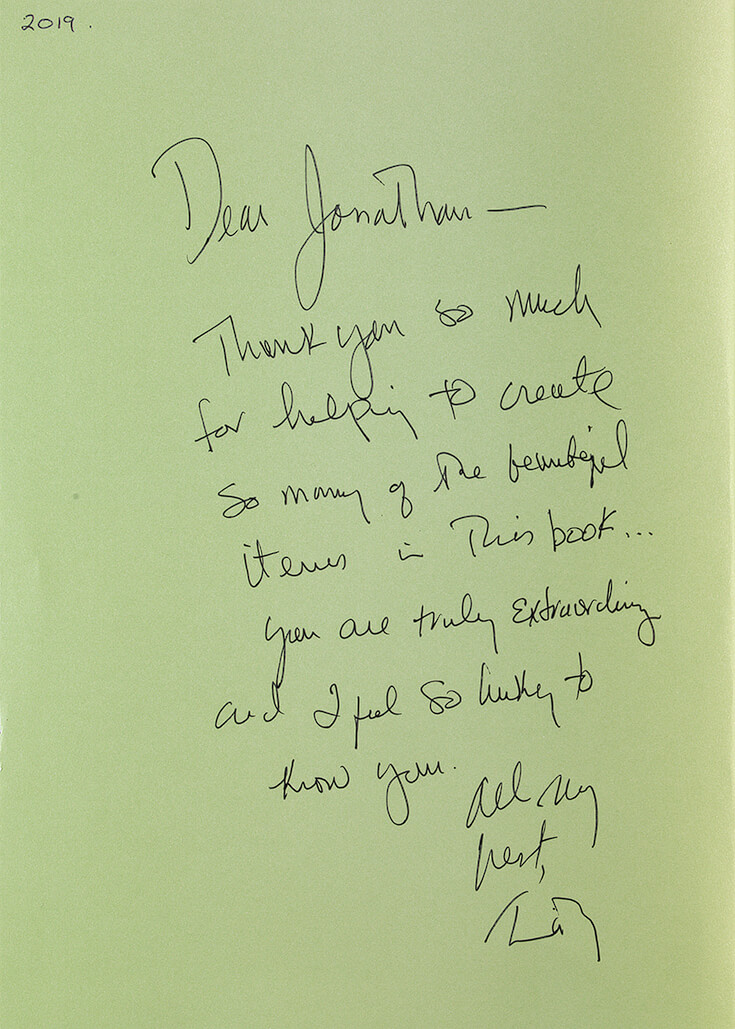 2019.
Dear Jonathan —
Thank you so much
for helping to create
so many of the beautiful
items in This book...
you are truly extraordinary
and I feel so lucky to
know you.
All my
best,